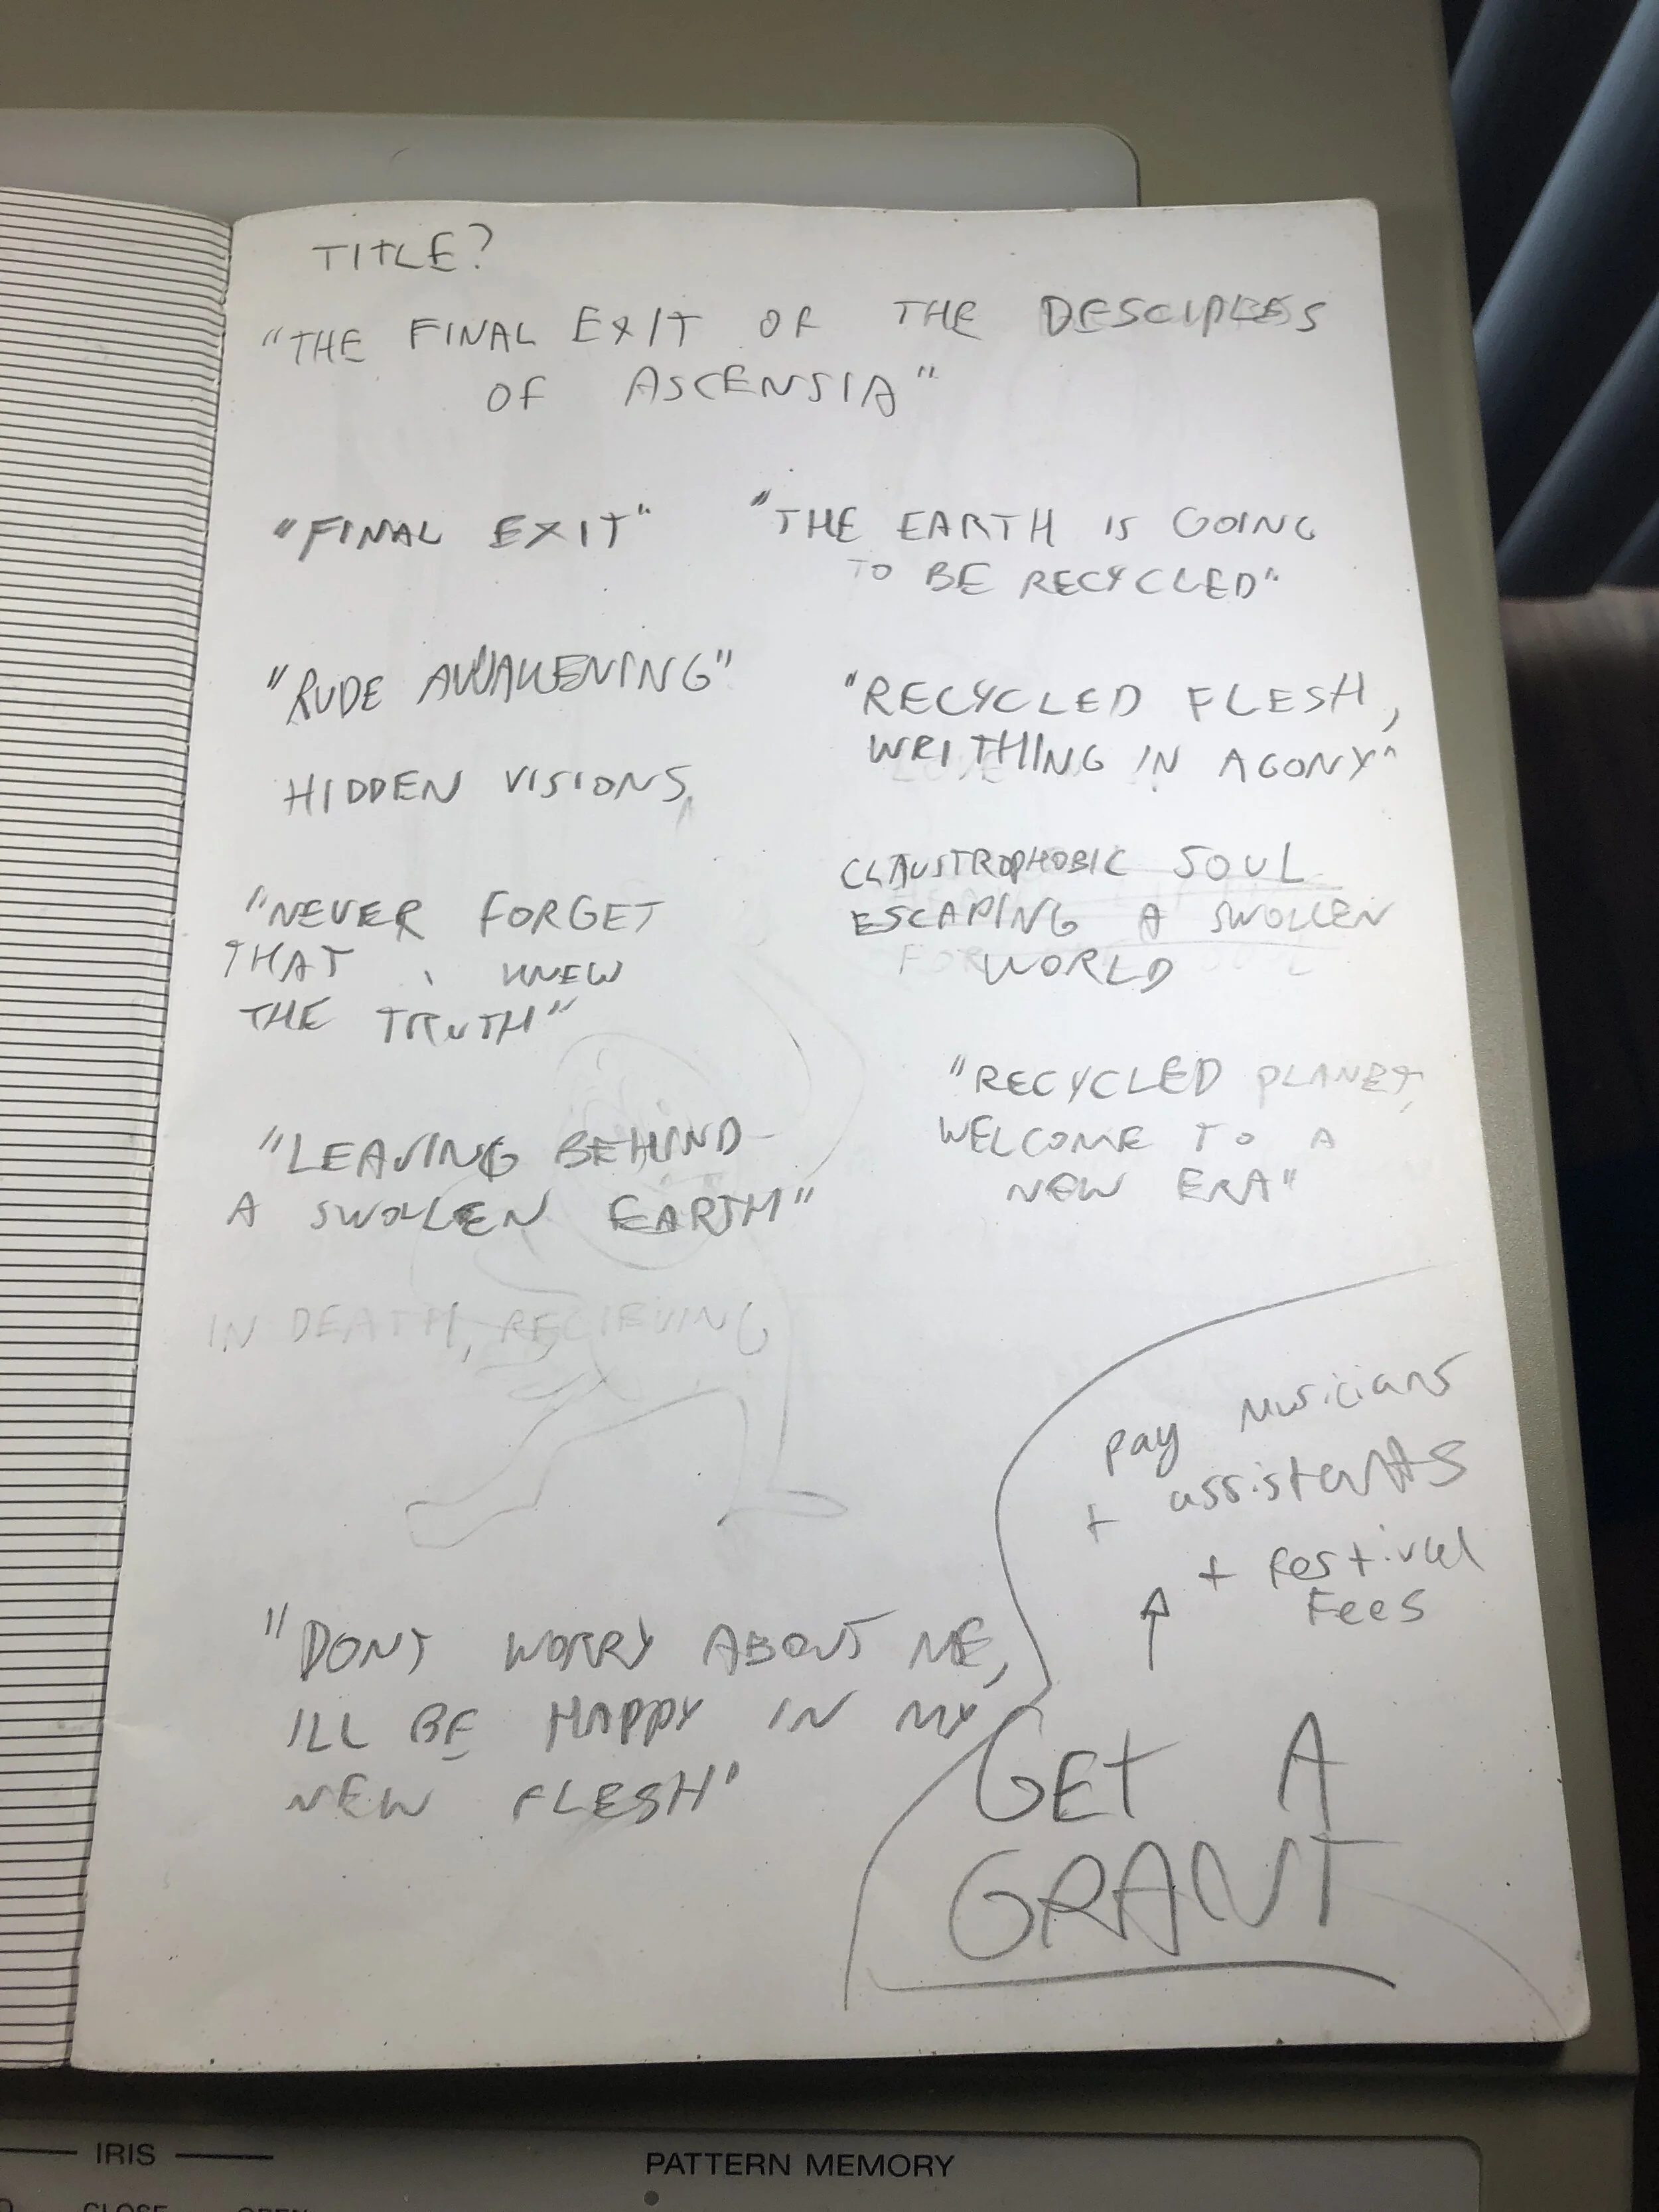 TITLE?
"THE FINAL EXIT OF THE DESCIPLES
OF ASCENSIA"
"FINAL EXIT"
"THE EARTH IS GOING
TO BE RECYCLED"
"RUDE AWAKENING"
"RECYCLED FLESH,
WRITHING IN AGONY"
HIDDEN VISIONS
CLAUSTROPHOBIC SOUL
ESCAPING A SWOLLEN
WORLD
"NEVER FORGET
THAT I KNEW
THE TRUTH"
"RECYCLED PLANET,
WELCOME TO A
NEW ERA"
"LEAVING BEHIND
A SWOLLEN EARTH"
IN DEATH, RECIEVING
pay musicians
+ assistants
+ festival
Fees
"DONT WORRY ABOUT ME,
ILL BE HAPPY IN MY
NEW FLESH"
GET A
GRANT
IRIS
PATTERN MEMORY
CLOSE OPEN